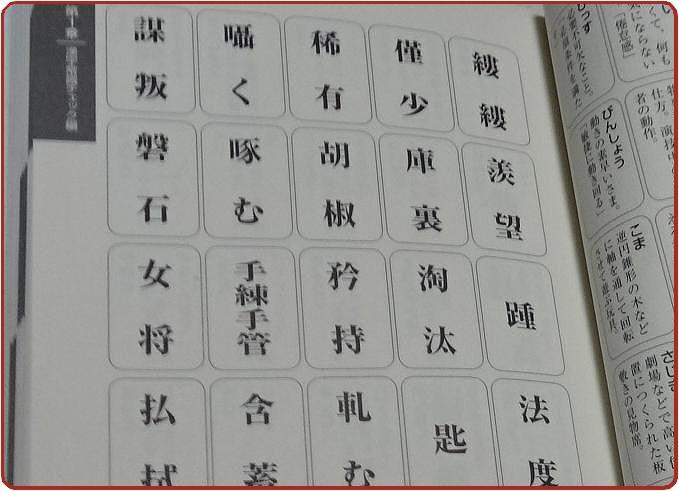 くて、何も
気にならない
「倦怠感」
必要不可欠なこと。
「必須条件を満た
仕方。演技中の
者の動作。
びんしょう
動きの素早いさま。
「敏捷に動き回る」
こま
逆円錐形の木など
に軸を通して回転
させて遊ぶ玩具。
さじき
劇場などで高い位
置につくられた板
敷きの見物席。
縷縷
僅少
稀有
囁く
謀叛
羨望
庫裏
胡椒
啄む
磐石
踵
淘汰
矜持
手練手管
女将
法度
匙
軋む
含蓄
払拭
第1章